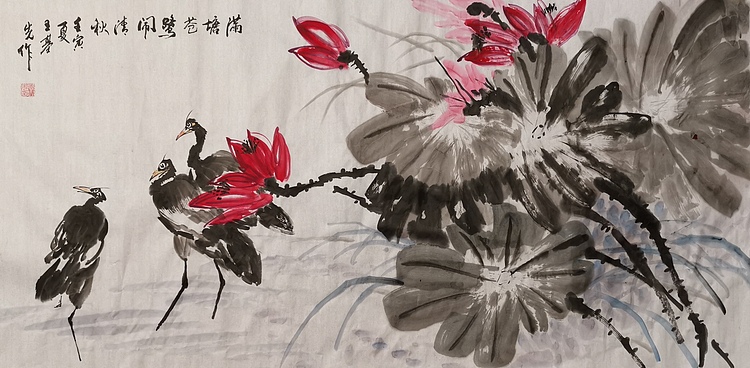 满塘苍鹭闹清秋
壬寅
夏
王
先作